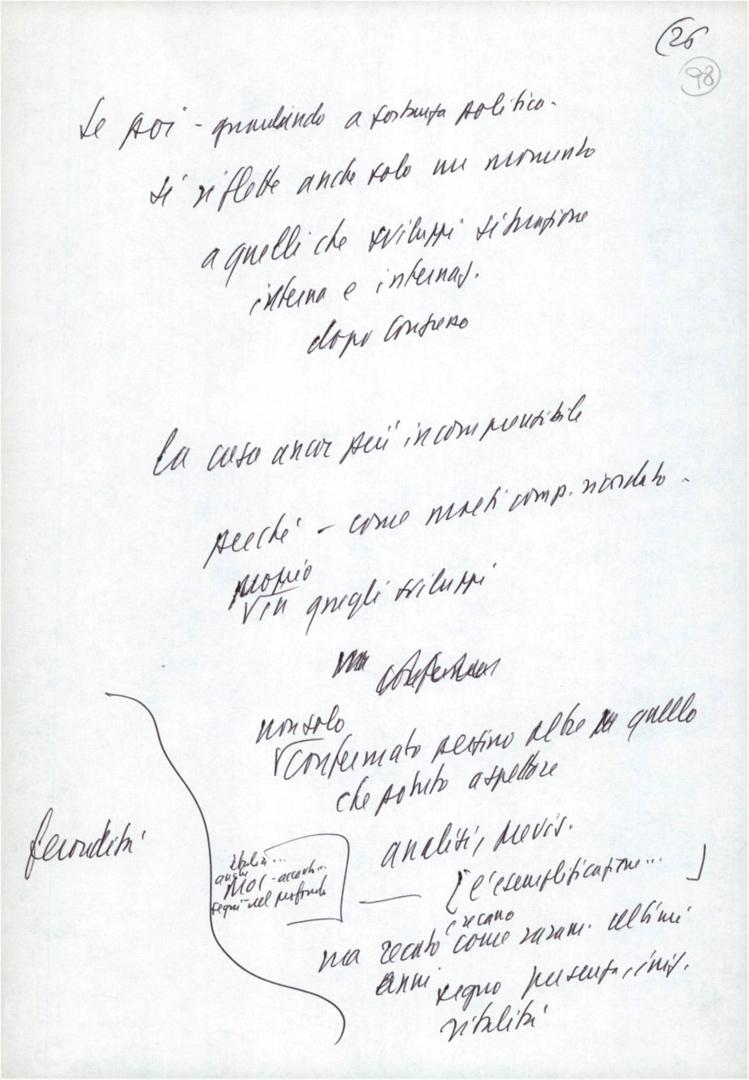 (26
98
Se poi - guardando a sostanza politica -
si riflette anche solo un momento
a quelli che sviluppi situazione
interna e internaz.
dopo Congresso
la cosa ancor più incomprensibile
perché - come molti comp. ricordato -
proprio
in quegli sviluppi
non solo
confermato persino oltre quello
che potuto aspettare
analisi, previs.
[e esemplificazione... ]
anche
MOC - accordi...
segni nel profondo
fecondità
recano
ma recato come raram. ultimi
anni
segno presenza, iniz.
vitalità